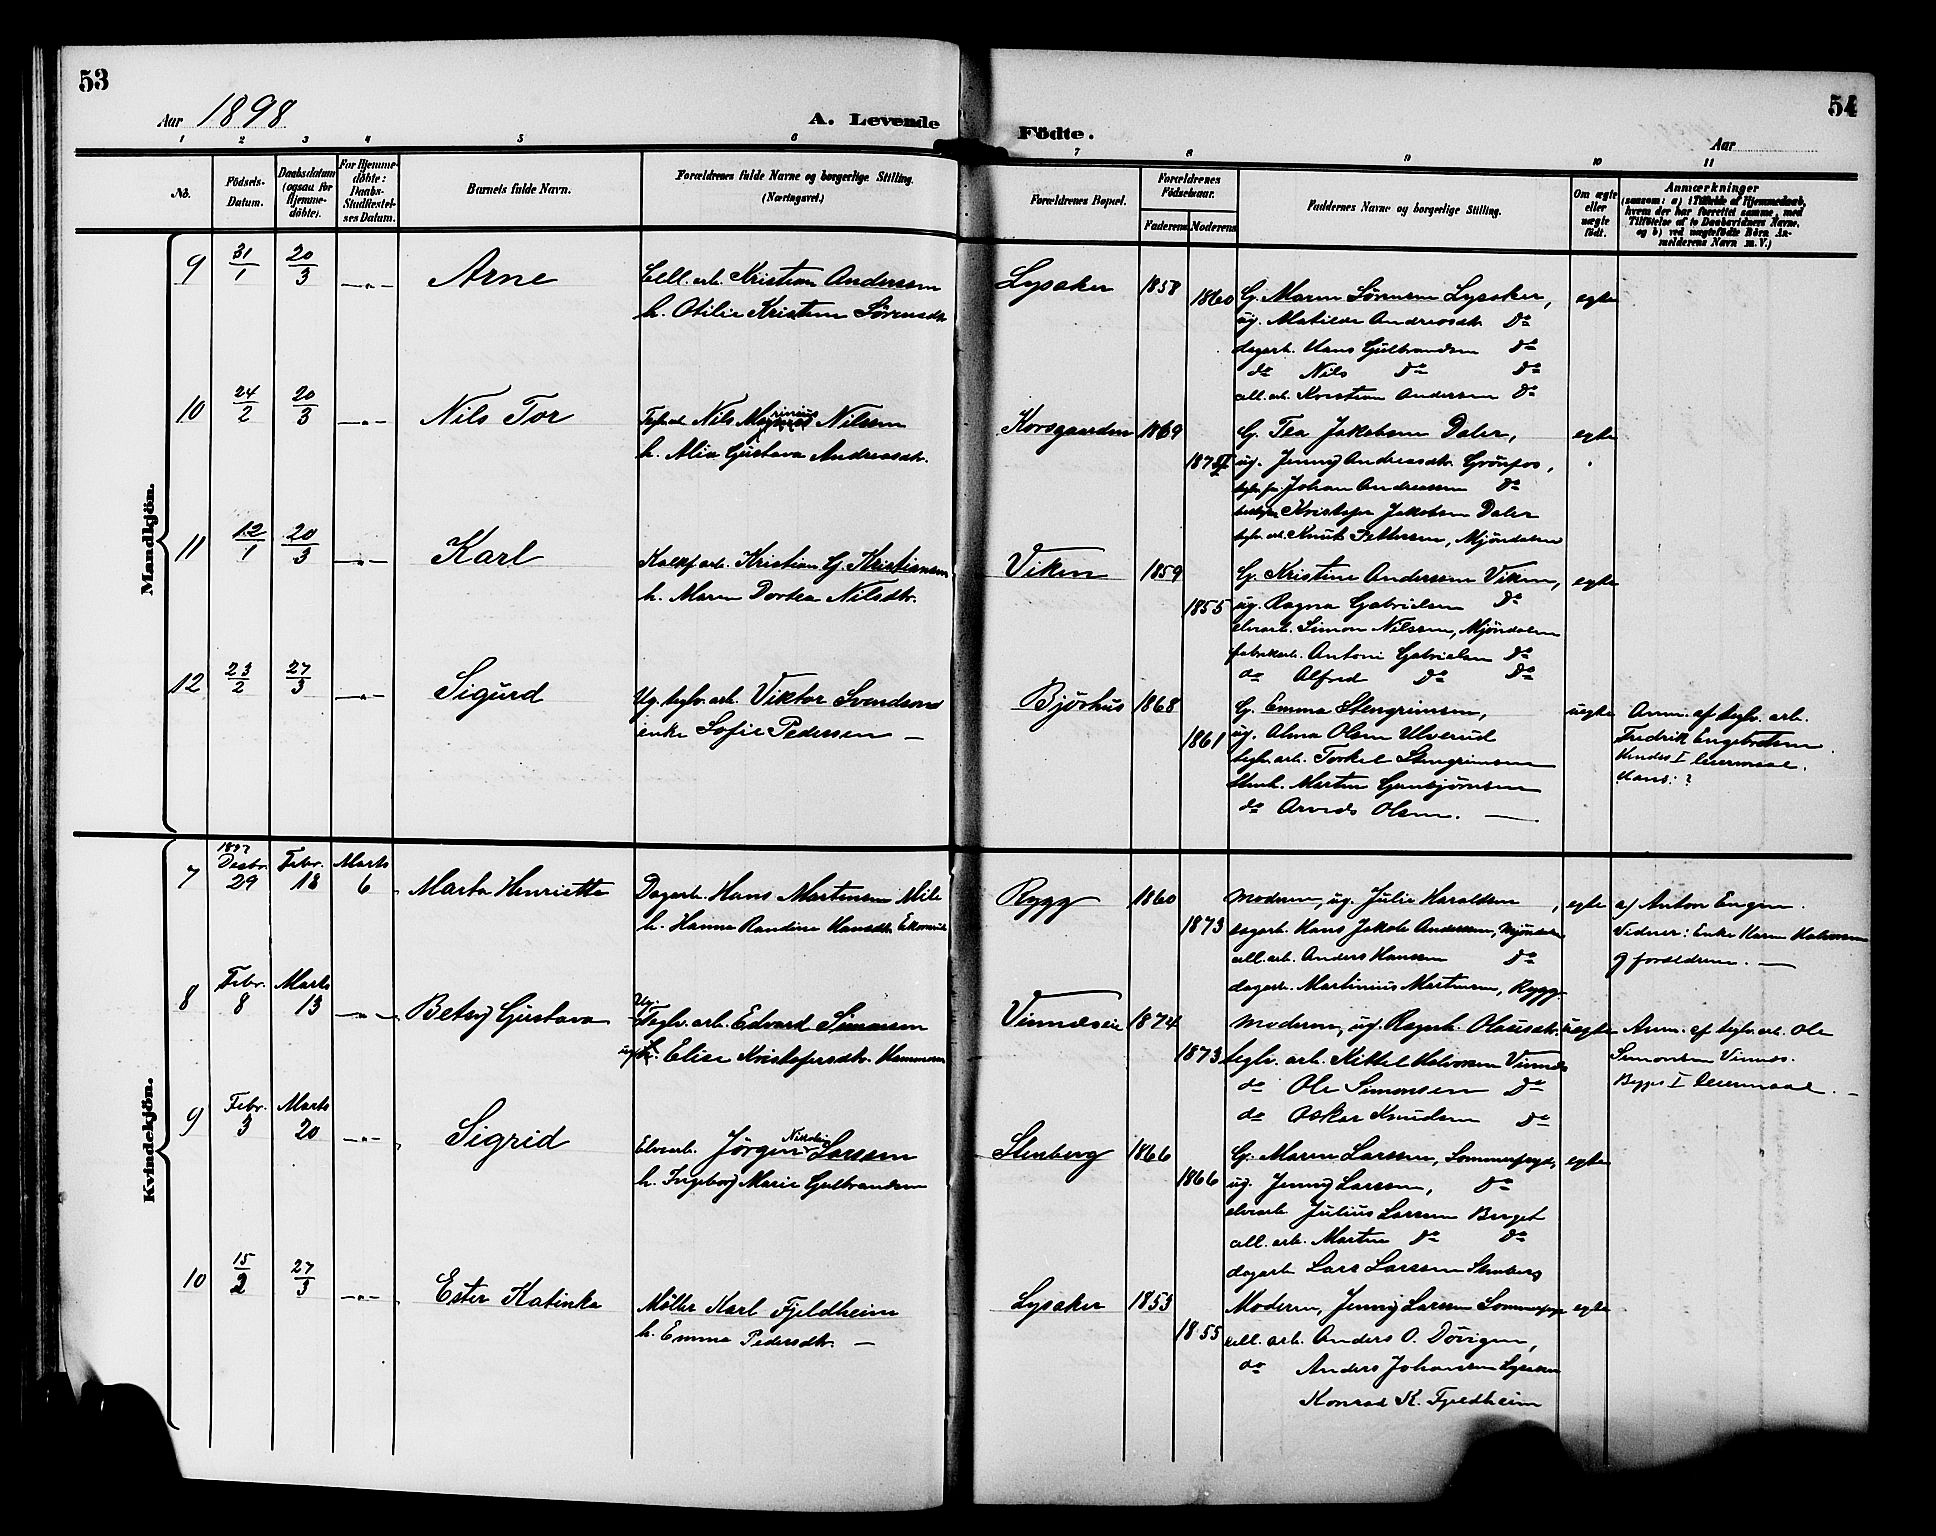 53
54
Aar 1898
A. Levende
Födte.
Aar
1 2 3 4 5 6 7 8 9 10 11
No.
Födsels-Datum.
Daabsdatum (ogsaa for Hjemme-döbte).
For Hjemme-döbte: Daabs-Stadfæstel-ses Datum.
Barnets fulde Navn.
Forældrenes fulde Navne og borgerlige Stilling. (Næringsvei.)
Forældrenes Bopæl.
Forældrenes Födselsaar.
Faderens Moderens
Faddernes Navne og borgerlige Stilling.
Om ægte eller uægte födt.
Anmærkninger
(saasom: a) i Tilfælde af Hjemmedaab, hvem der har forrettet samme, med Tilföielse af to Daabsvidners Navne, og b) ved uægtefödte Börn An-melderens Navn m. V.)
Mandkjön.
9 31/1 20/3 —"— Arne
Cell. arb. Kristian Anderssen
h. Otilie Kristine Sörensdtr
Lysaker 1858
1860
G. Maren Sörensen Lysaker,
ug. Matilde Andreasdtr. Do
dagarb. Hans Gulbrandsen Do
do Nils Do Do
cell. arb. Kristian Andersen Do
egte
10 24/2 20/3 —"— Nils Tor
Nils Marinius Nilssen
h. Alia Gustava Andreasdtr.
Korsgaarden 1869
187
G. Tea Jakobsen Daler,
ug. Jenny Andreasdtr. Grönfos,
Johan Andreassen Do
Kristofer Jakobsen Daler
teglv. arb. Knut Pettersen, Mjöndalen
egte
11 12/1 20/3 —"— Karl
Kalkf. arb. Kristian G. Kristiansen
h. Maren Dortea Nilsdtr.
Viken 1859
1855
G. Kristine Anderssen Viken,
ug. Ragna Gabrielsen Do
elvearb. Simon Nilssen, Mjöndalen
fabrikarb. Antoni Gabrielsen Do
do Alfred Do Do
egte
12 23/2 27/3 —"— Sigurd
Ug. teglv. arb. Viktor Svendsen
enke Sofie Pedersen —
Björhus 1868
1861
G. Emma Stengrimsen,
ug. Alma Olsen Ulverud
teglv. arb. Torkel Stengrimsen
Stenh. Martin Gunbjörnsen
do Arvids Olsen. —
uegte
Anm. af teglv. arb.
Fredrik Engebretsen.
Hendes I leiermaal.
Hans: ?
Kvindekjön.
7 1897 Desbr. 29 Febr. 18 Marts 6 Marta Henriette
Dagarb. Hans Martinsen Mile
h. Hanna Randine Hansdtr.
Rygg 1860
1873
Moderen, ug. Julie Haraldsen,
dagarb. Hans Jakob Anderssen, Mjöndalen
cell. arb. Anders Hanssen Do
dagarb. Martinius Martinsen, Rygg
egte
af Anton Engen.
Viderer: Enke Karen Halvorsen
og forældrene. —
8 Febr. 8 Marts 13 —"— Betsy Gustava
Ug. Teglv. arb. Edvard Simonsen
ug. Elise Kristofersdtr. Hammeren
Vinnæseie 1874
1873
Moderen, ug. Ragnh. Olausdtr.
teglv. arb. Kittel Halvorsen Vinnes
do Ole Simonsen Do
do Oskar Knudsen Do
uegte
Anm. af teglv. arb. Ole
Simonsen Vinnes.
Begges I leiermaal. —
9 Febr. 3 Marts 20 —"— Sigrid
Elvearb. Jörgen Nikolai Larssen
h. Ingeborg Marie Gulbrandsen
Stenberg 1866
1866
G. Maren Larssen, Sommerfryd,
ug. Jenny Larssen, Do
elvearb. Julius Larssen Berget
cell. arb. Martin Do Do
dagarb. Lars Larssen Stenberg
egte
10 15/2 27/3 —"— Ester Katinka
Möller Karl Fjeldheim
h. Emma Pedersdtr. —
Lysaker 1853
1855
Moderen, Jenny Larssen Sommerfryd
cell. arb. Anders O. Dövigen,
do Anders Johansen Lysaker
Konrad K. Fjeldheim
egte